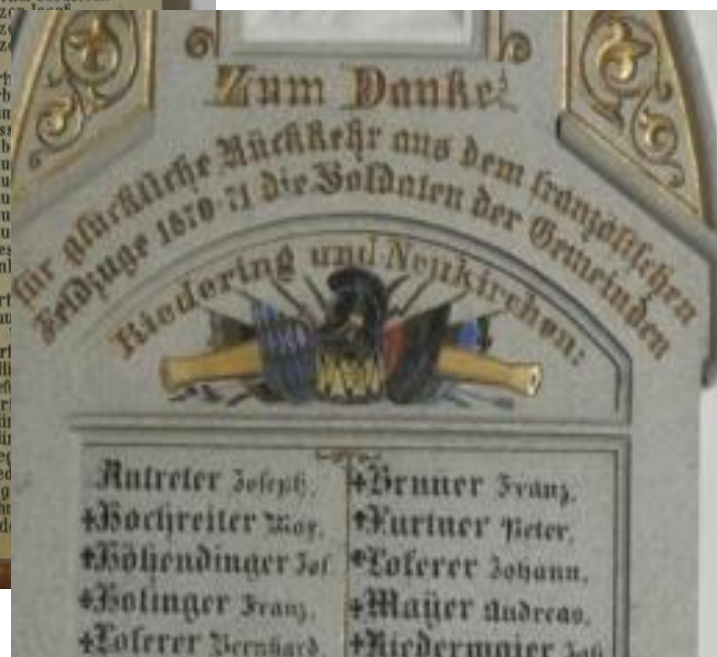 Zum Danke
für glückliche Rückkehr aus dem französischen
Feldzuge 1870-71 die Soldaten der Gemeinden
Riedering und Neukirchen:
Antreter Joseph.
+Hochreiter Max.
+Höhendinger Jos
+Holinger Franz.
+Loferer Bernhard.
+Bruner Franz.
+Furtner Peter.
+Loferer Johann.
+Mayer Andreas.
+Riedermaier Joh